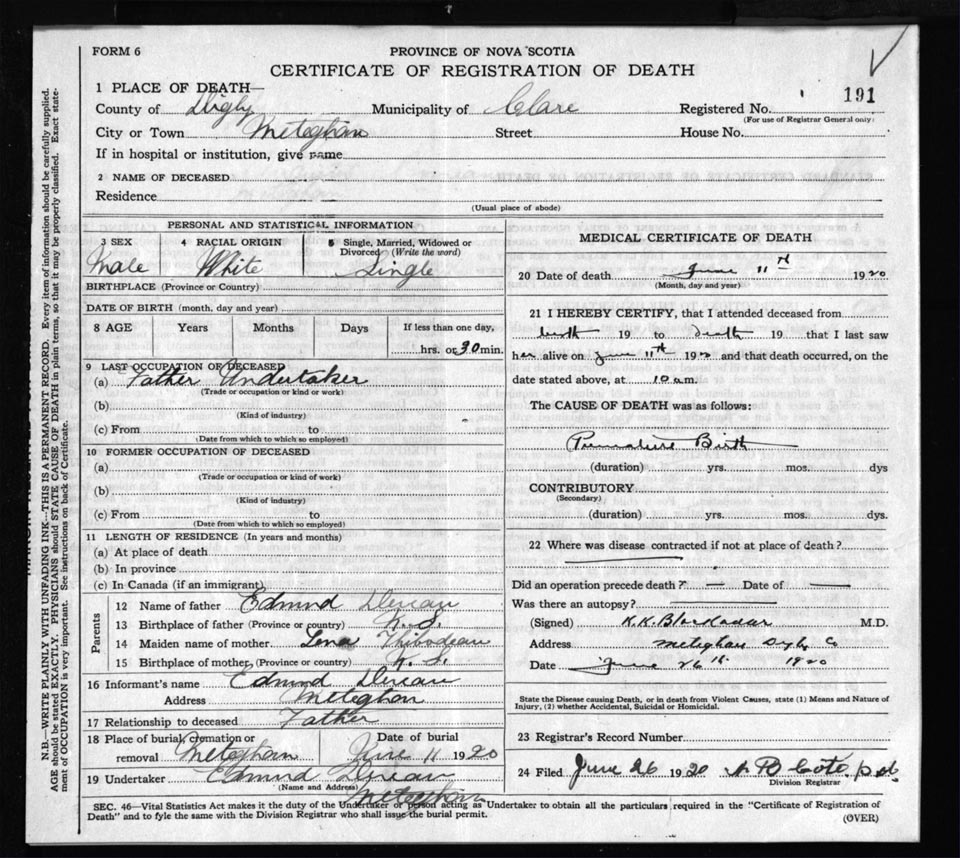 FORM 6
PROVINCE OF NOVA SCOTIA
CERTIFICATE OF REGISTRATION OF DEATH
1 PLACE OF DEATH—
County of Digby Municipality of Clare Registered No. 191
(For use of Registrar General only)
City or Town Meteghan Street House No.
If in hospital or institution, give name
2 NAME OF DECEASED
Residence
(Usual place of abode)
PERSONAL AND STATISTICAL INFORMATION
3 SEX 4 RACIAL ORIGIN 5 Single, Married, Widowed or Divorced (Write the word)
Male White Single
BIRTHPLACE (Province or Country)
DATE OF BIRTH (month, day and year)
8 AGE Years Months Days If less than one day,
hrs. or 30 min.
9 LAST OCCUPATION OF DECEASED
(a) Father Undertaker
(Trade or occupation or kind or work)
(b)
(Kind of industry)
(c) From to
(Date from which to which so employed)
10 FORMER OCCUPATION OF DECEASED
(a)
(Trade or occupation or kind of work)
(b)
(Kind of industry)
(c) From to
(Date from which to which so employed)
11 LENGTH OF RESIDENCE (In years and months)
(a) At place of death
(b) In province
(c) In Canada (if an immigrant)
Parents
12 Name of father Edmund
13 Birthplace of father (Province or country) N.S.
14 Maiden name of mother Lena Thibodeau
15 Birthplace of mother (Province or country) N.S.
16 Informant's name Edmund
Address Meteghan
17 Relationship to deceased Father
18 Place of burial, cremation or removal Meteghan Date of burial June 11 1920
19 Undertaker Edmund
(Name and Address) Meteghan
MEDICAL CERTIFICATE OF DEATH
20 Date of death June 11th 1920
(Month, day and year)
21 I HEREBY CERTIFY, that I attended deceased from
birth 19 to Death 19 that I last saw
her alive on June 11th 1920 and that death occurred, on the
date stated above, at 10 a.m.
The CAUSE OF DEATH was as follows:
Premature Birth
(duration) yrs. mos. dys
CONTRIBUTORY
(Secondary)
(duration) yrs. mos. dys.
22 Where was disease contracted if not at place of death?
Did an operation precede death? — Date of —
Was there an autopsy? —
(Signed) M.D.
Address Meteghan Digby Co
Date June 26th 1920
State the Disease causing Death, or in death from Violent Causes, state (1) Means and Nature of
Injury, (2) whether Accidental, Suicidal or Homicidal.
23 Registrar's Record Number
24 Filed June 26 1920
Division Registrar
SEC. 46—Vital Statistics Act makes it the duty of the Undertaker or person acting as Undertaker to obtain all the particulars required in the "Certificate of Registration of
Death" and to fyle the same with the Division Registrar who shall issue the burial permit.
(OVER)
N.B.—WRITE PLAINLY WITH UNFADING INK—THIS IS A PERMANENT RECORD. Every item of information should be carefully supplied.
AGE should be stated EXACTLY. PHYSICIANS should STATE CAUSE OF DEATH in plain terms, so that it may be properly classified. Exact state-
ment of OCCUPATION is very important. See instructions on back of Certificate.